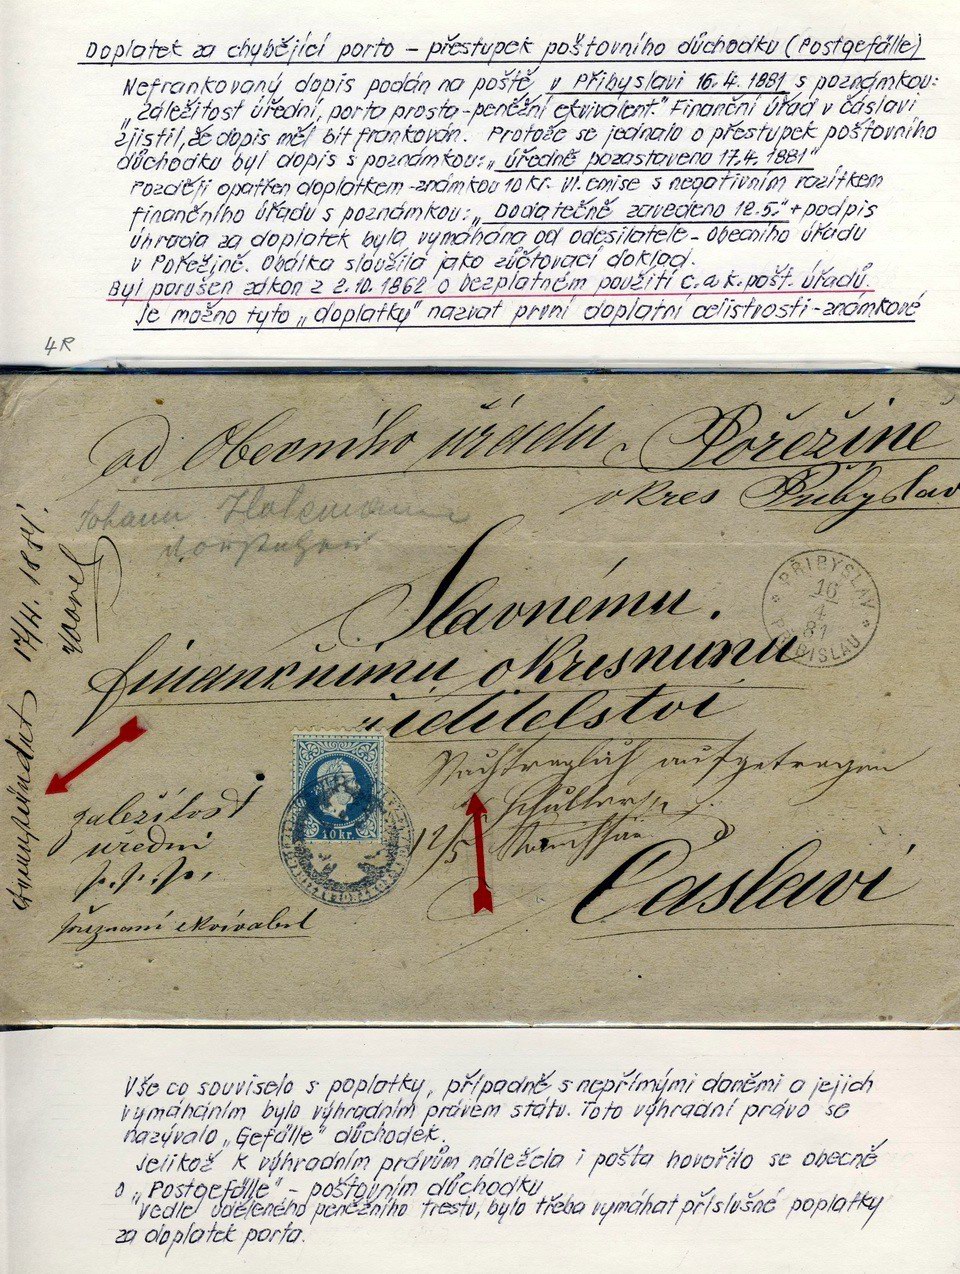 Doplatek za chybějící porto – přestupek poštovního důchodku (Postgefälle)
Nefrankovaný dopis podán na poště v Přibyslavi 16.4. 1881 s poznámkou:
„záležitost úřední, porta prosta – peněžní ekvivalent." Finanční úřad v Čáslavi
zjistil, že dopis měl bít frankován. Protože se jednalo o přestupek poštovního
důchodku byl dopis s poznámkou: „úředně pozastaveno 17.4. 1881"
Později opatřen doplatkem – známkou 10 kr. VI. emise s negativním razítkem
finančního úřadu s poznámkou: „Dodatečně zavedeno 12.5." + podpis
úhrada za doplatek byla vymáhána od odesilatele – Obecního úřadu
v Pořežině. Obálka sloužila jako zúčtovací doklad.
Byl porušen zákon z 2.10. 1862 o bezplatném použití c. a k. pošt. úřadů.
Je možno tyto „doplatky" nazvat první doplatní celistrosti – známkové
4R
od Obecního úřadu v Pořežině
okres Přibyslav
Johann
PŘIBYSLAV
16
4
81
PŘIBISLAU
17/4. 1881.
Slavnému
finančnímu okresnimu
ředitelství
10 kr.
Nachträglich aufgetragen
12/5
záležitost
úřední
p.p.p.
ekvivabet
Čáslavi
Vše co souviselo s poplatky, případně s nepřímými daněmi a jejich
vymáháním bylo výhradním právem státu. Toto výhradní právo se
nazývalo „Gefälle" důchodek.
Jelikož k výhradním právům náležela i pošta hovořilo se obecně
o „Postgefälle" – poštovním důchodku
Vedle uděleného peněžního trestu, bylo třeba vymáhat příslušné poplatky
za doplatek porta.